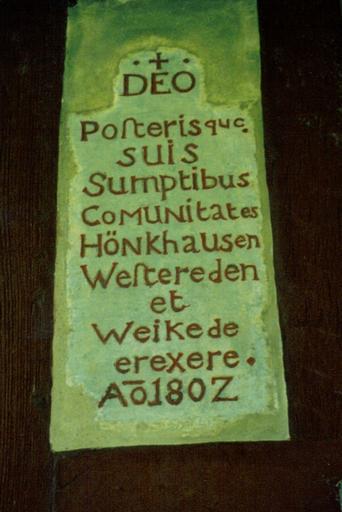 · + ·
DEO
Poſterisque
suis
Sumptibus
CoMUNitates
Hönkhausen
Weſtereden
et
Weikede
erexere.
Aō1802